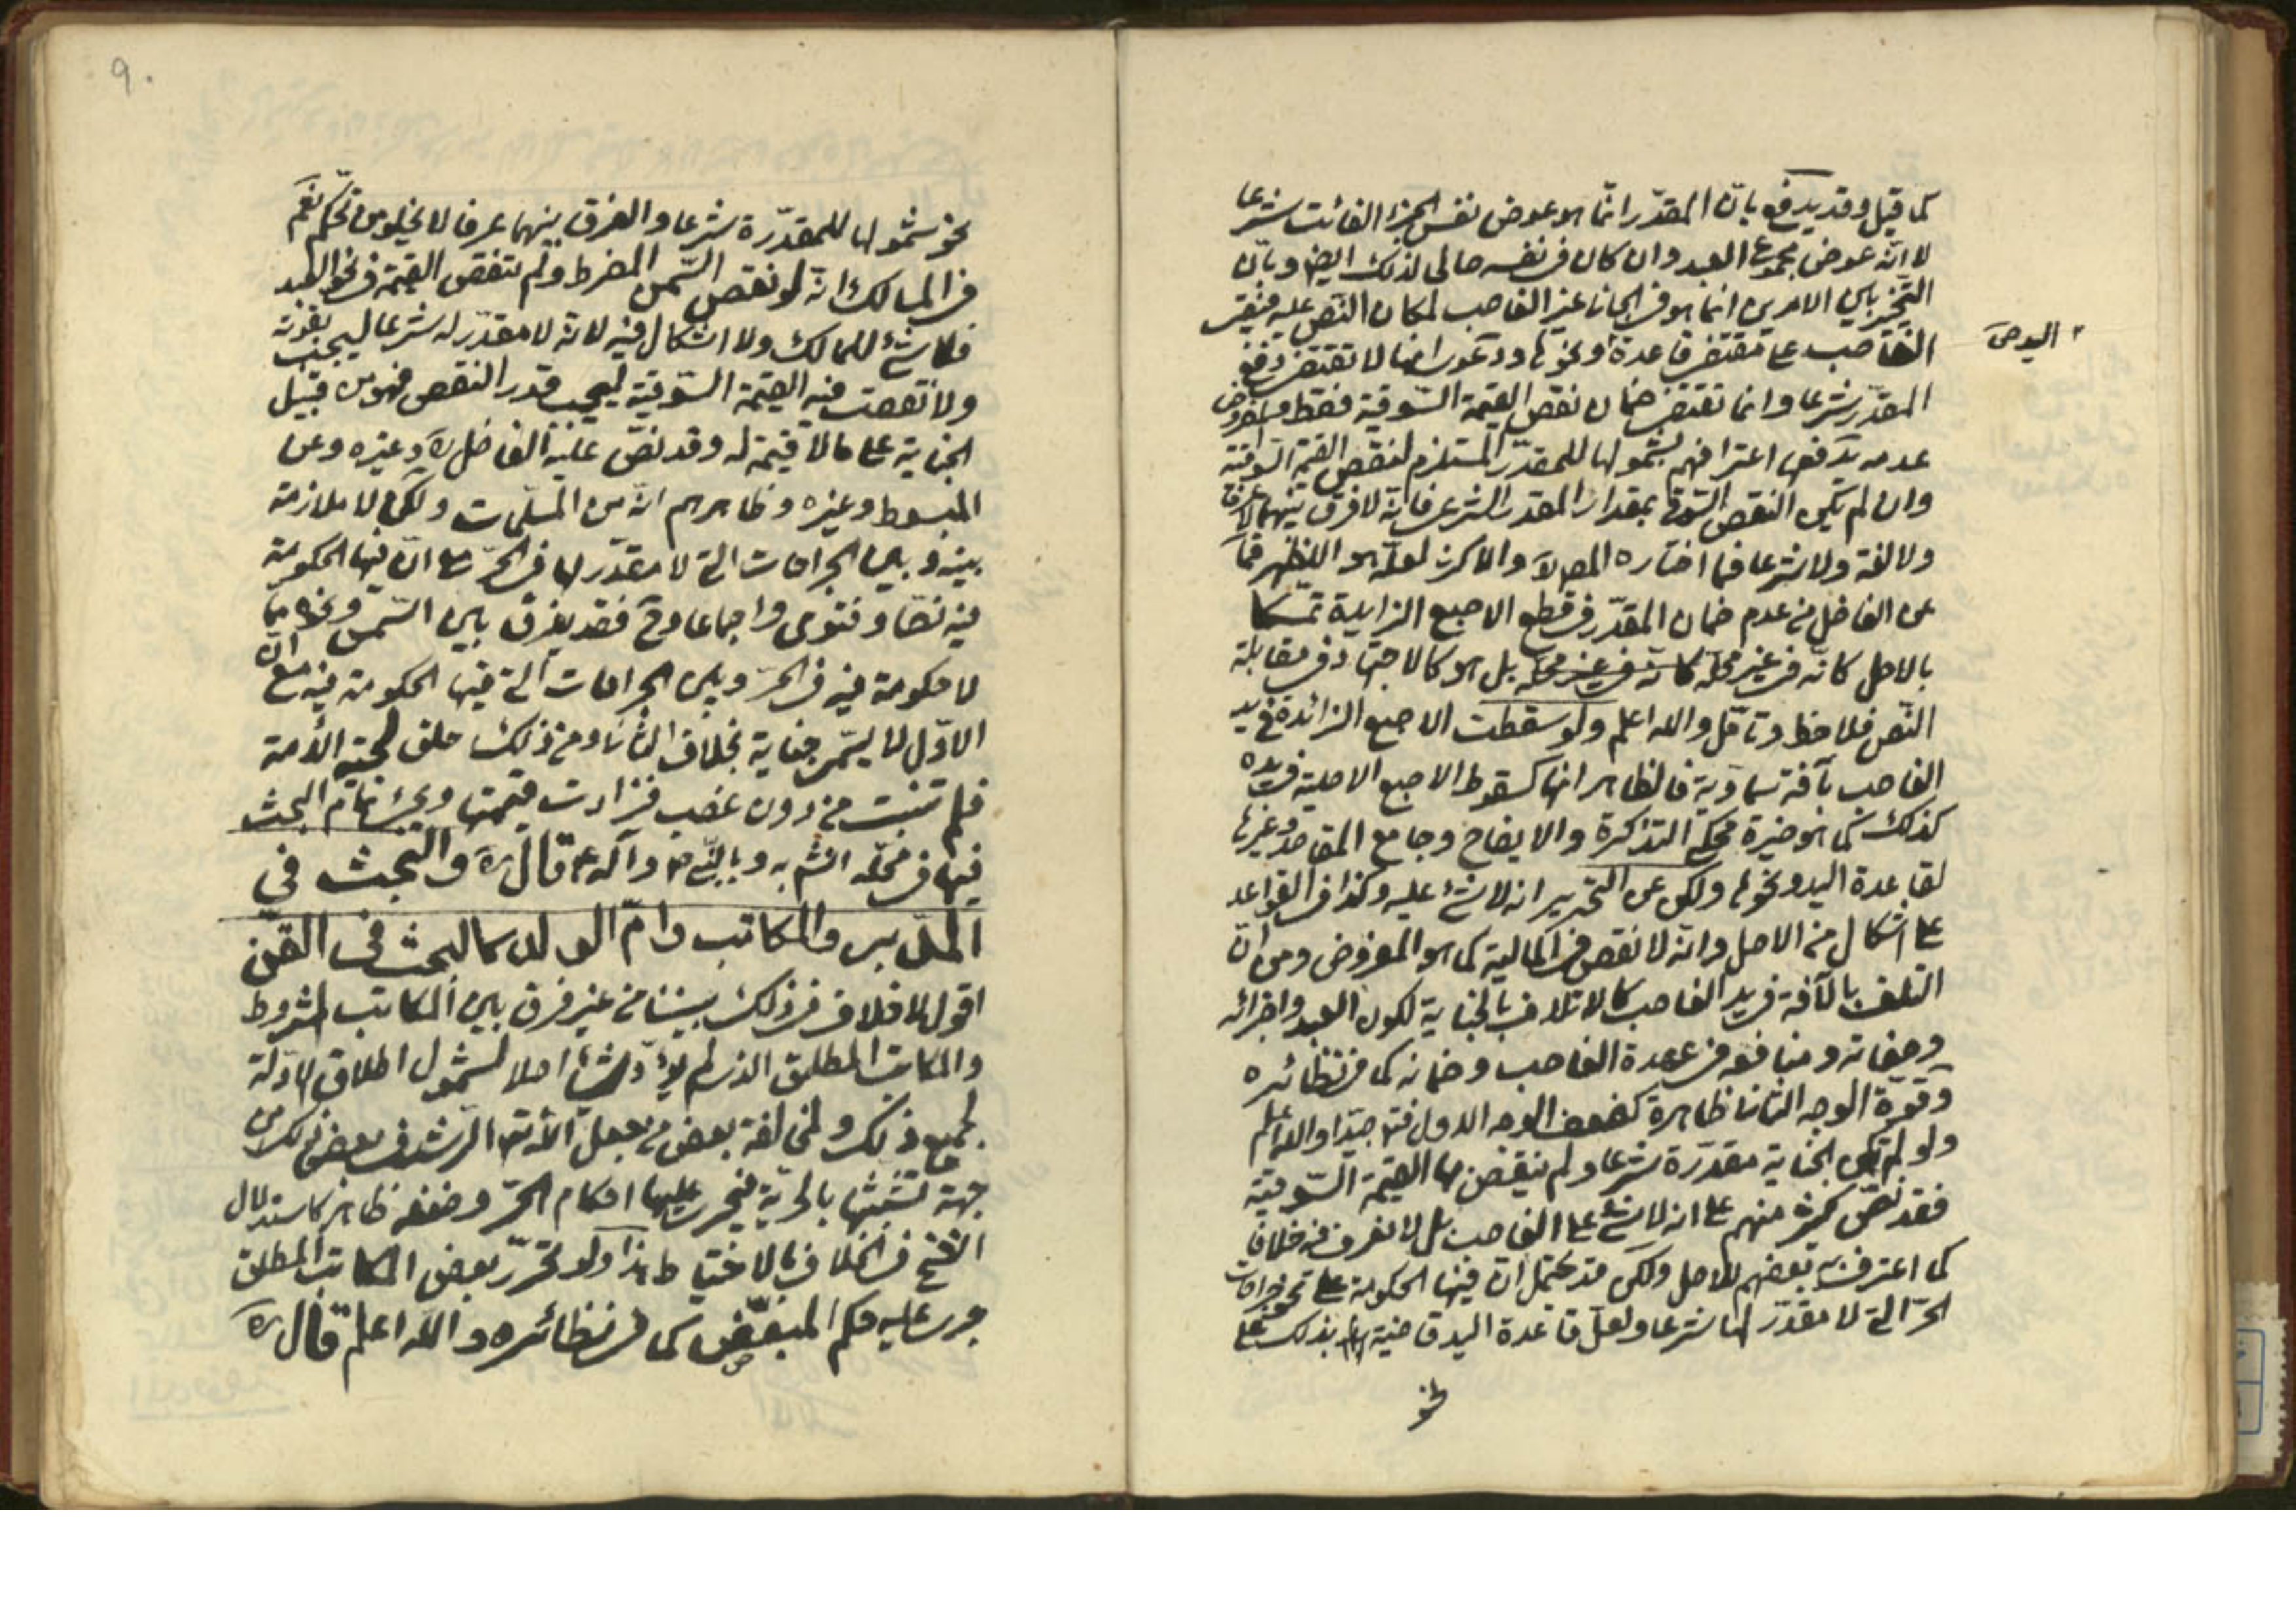 كما قيل وقد يدفع بانّ المقدّر انّما هو عوض نفس الجزء الفائت شرعا
لا انّه عوض مجموع العبد وان كان في نفسه مالى لذلك ايض وبانّ
التخيير بين الامرين انما هو في الجانى غير الغاصب لمكان النّص عليه فيبقى
اليد ص
الغاصب على مقتضى قاعدة ونحوها ودعوى انها لا تقتضى دفع
المقدّر شرعا وانما تقتضى ضمان نقص القيمة السّوقية فقط والمفروض
عدمه يدفعها اعترافهم بشمولها للمقدّر المستلزم لنقص القيمة السّوقية
وان لم يكن النقص السّوقى بمقدار المقدر الشرعى فانّه لا فرق بينهما لا عرفا
ولا لغة ولا شرعا فما اختاره المص ره والاكثر لعلّه هو الاظهر فما
عن الفاضل من عدم ضمان المقدّر في قطع الاصبع الزايدة تمسّكا
بالاصل كانّه في غير محلّه كانّه في غير محلّه بل هو كالاجتهاد في مقابلة
النّص فلاحظ وتامّل والله اعلم ولو سقطت الاصبع الزائدة في يد
الغاصب بآفة سماوية فالظاهر انها كسقوط الاصبع الاصلية في يده
كذلك كما هو خيرة محكى التذكرة والايضاح وجامع المقاصد وغيرها
لقاعدة اليد ونحوها ولكن عن التحرير انه لا شئ عليه وكذا في القواعد
على اشكال من الاصل وانّه لا نقص في المالية كما هو المفروض ومن انّ
التلف بالآفة في يد الغاصب كالاتلاف بالجناية لكون العبد واجزائه
وصفاته ومنافعه في عهدة الغاصب وضمانه كما في نظائره
وقوّة الوجه الثانى ظاهرة كضعف الوجه الاول فتد جيّدا والله اعلم
ولو لم تكن الجناية مقدّرة شرعا ولم ينقص بها القيمة السّوقية
فقد نصّ كثير منهم على انه لا شئ على الغاصب بل لا نعرف فيه خلافا
كما اعترف به بعضهم للاصل ولكن قد يحتمل انّ فيها الحكومة على نحو جراحات
الحرّ التى لا مقدّر لها شرعا ولعلّ قاعدة اليد قاضية بذلك على
نحو
٩٠
نحو شمولها للمقدّرة شرعا والفرق بينهما عرفا لا يخلو من تحكّم نعم
في المسالك انّه لو نقص السّمن المفرط ولم تنقص القيمة في نحو العبد
فلا شئ للمالك ولا اشكال فيه لانّه لا مقدّر له شرعا ليجب بفوته
ولا نقصت فيه القيمة السّوقية ليجب قدر النقص فهو من قبيل
الجناية على مالا قيمة له وقد نصّ عليه الفاضل ره وغيره وعن
المبسوط وغيره وظاهرهم انّه من المسلّمات ولكن لا ملازمة
بينه وبين الجراحات التى لا مقدّر لها في الحرّ مع انّ فيها الحكومة
فيه نصّا وفتوى واجماعا وح فقد يفرق بين السّمن ونحوه مما
لا حكومة فيه في الحرّ وبين الجراحات التى فيها الحكومة فيه مع انّ
الاوّل لا يسمّى جناية بخلاف الثّانى ومن ذلك حلق لحية الأمة
فلم تنبت من دون غصب فزادت قيمتها ويجئ تمام البحث
فيها في محلّه انش به وبالنّبى ص وآله ع قال ره والبحث في
المدبّر والمكاتب وامّ الولد كالبحث فى القنّ
اقول لا خلاف في ذلك بيننا من غير فرق بين المكاتب المشروط
والمكاتب المطلق الذى لم يؤدّ شيئا اصلا لشمول اطلاق الادّلة
لجميع ذلك ولمخالفة بعض من جعل الله تع الرّشد في بعض ذلك من
جهة تشبثها بالحرّية فيجرى عليها احكام الحرّ وضعفه ظاهر كاستدلال
الشّيخ في الخلاف بالاحتياط هذا ولو تحرّر بعض المكاتب المطلق
جرى عليه حكم المبعّض كما في نظائره والله اعلم قال ره